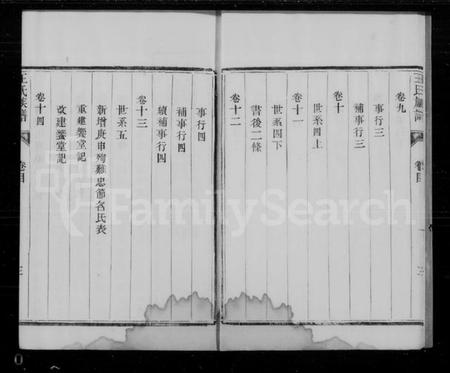 王氏族譜
卷目
三
卷九
事行三
補事行三
卷十
世系四上
卷十一
世系四下
書後二條
卷十二
事行四
補事行四
續補事行四
卷十三
世系五
新增庚申殉難忠節各氏表
重建饗堂記
改建饗堂記
卷十四
王氏族譜
卷目
三
FamilySearch